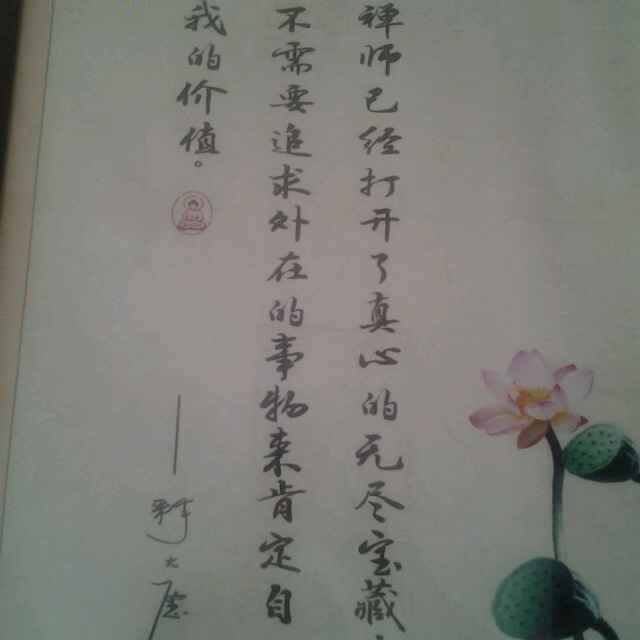 禅师已经打开了真心的无尽宝藏，
不需要追求外在的事物来肯定自
我的价值。